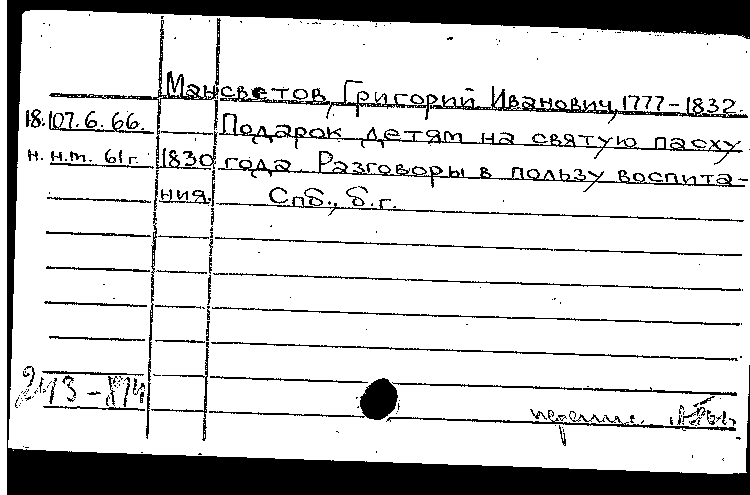 Мансветов, Григорий Иванович, 1777-1832.
18.107.6.66. Подарок детям на святую пасху
н. н.т. 61г. 1830 года. Разговоры в пользу воспита-
ния. Спб., б.г.
243-814